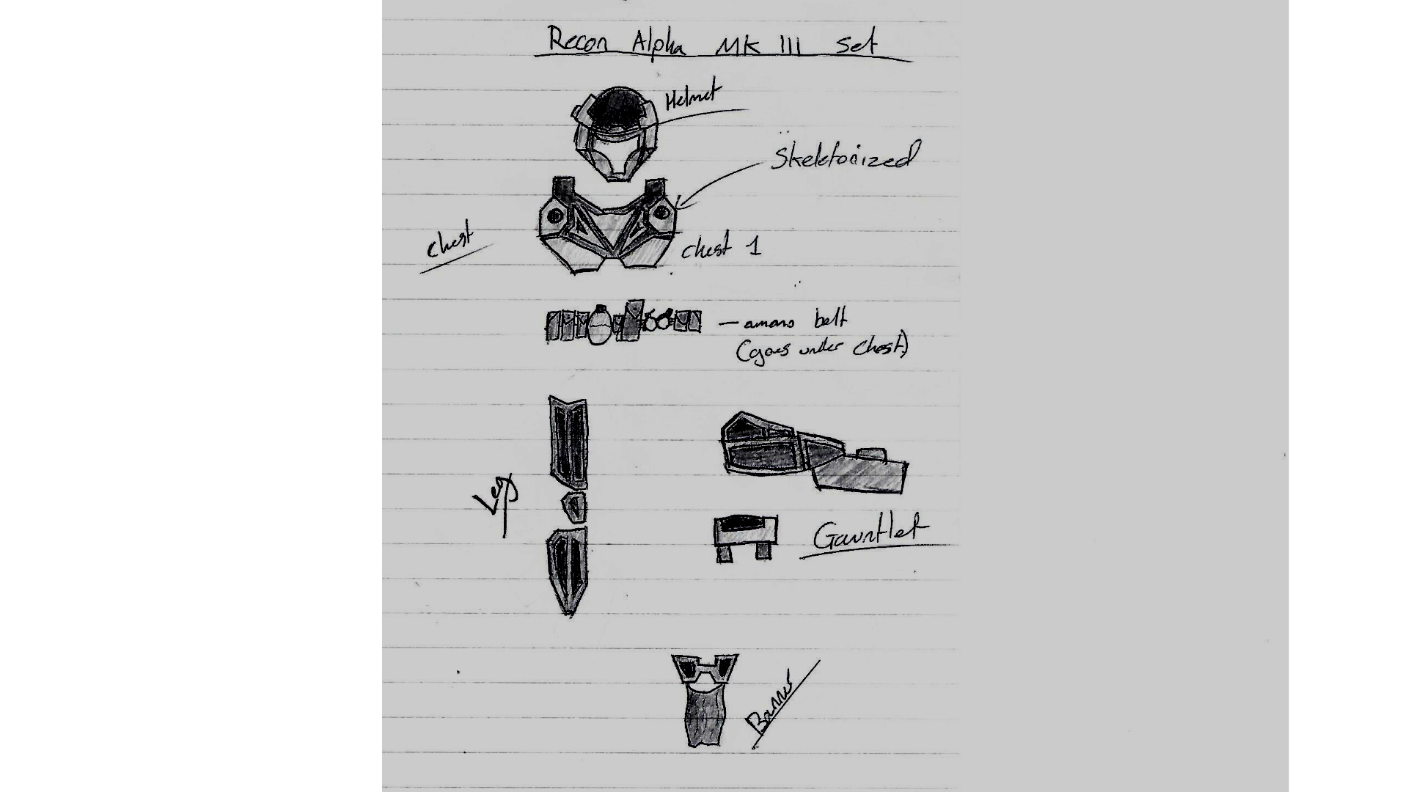 Recon Alpha MK III Set
Helmet
Skeletonized
Chest
Chest 1
— ammo belt
(goes under chest)
Leg
Gauntlet